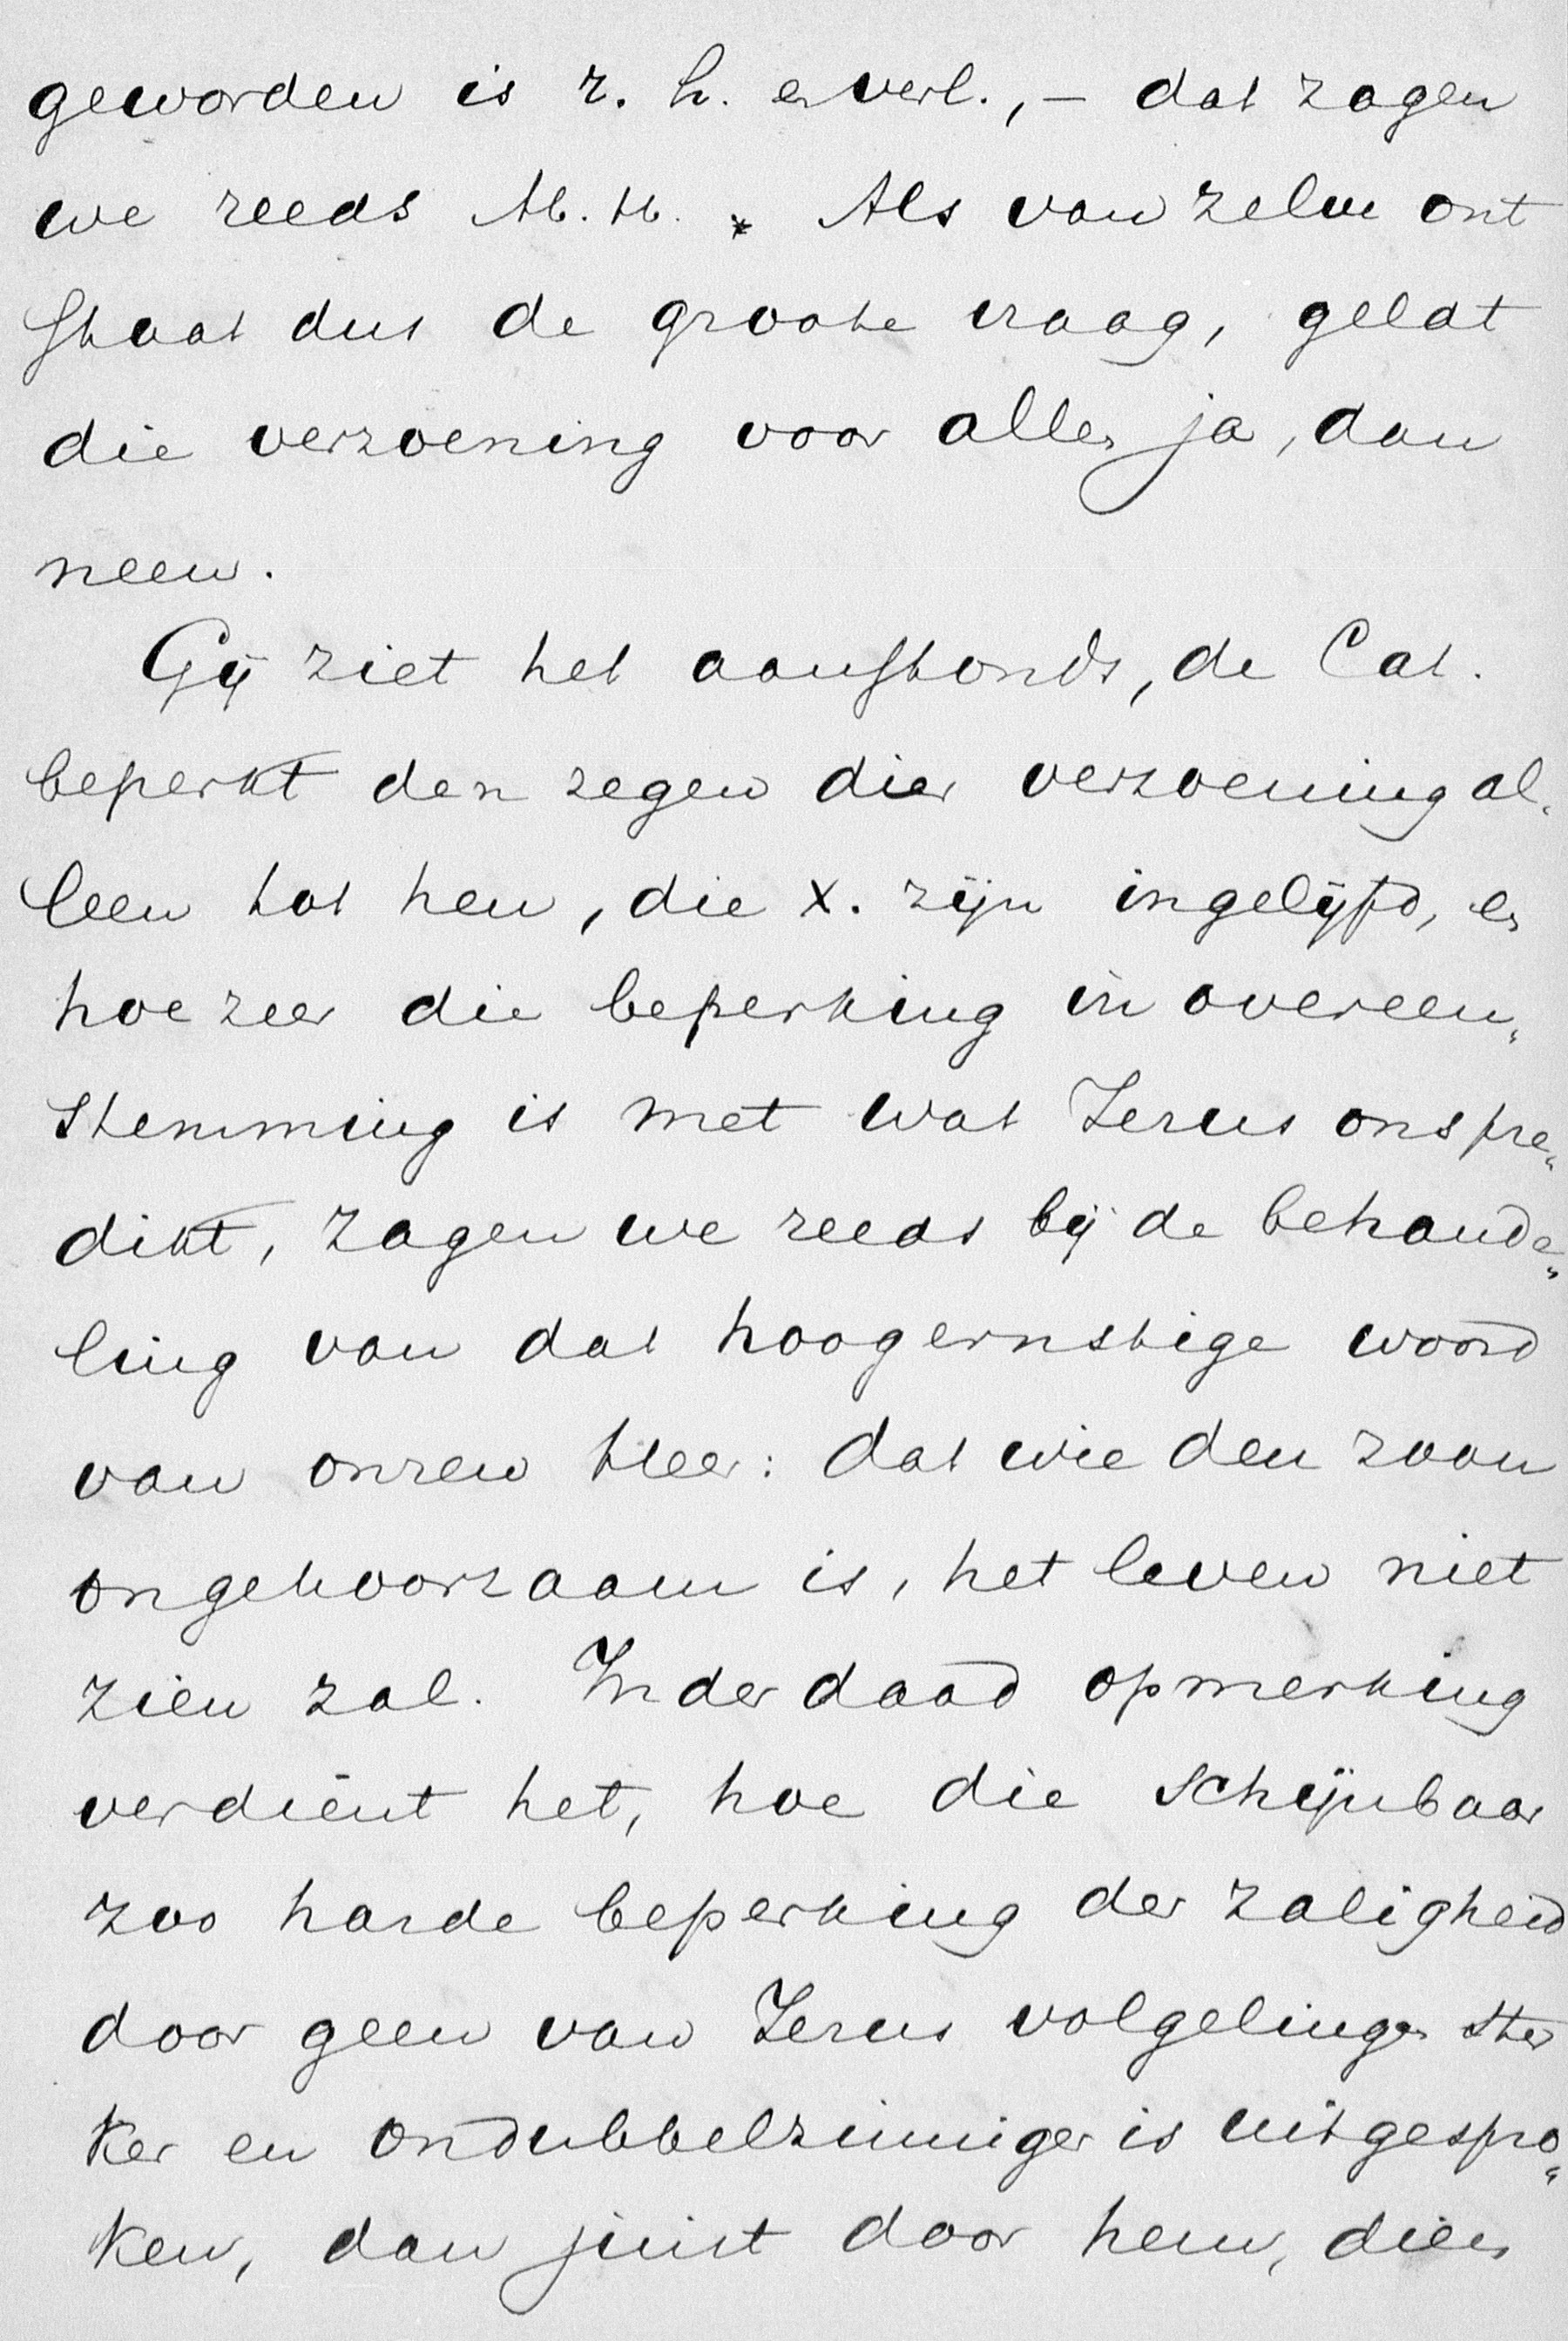 geworden is r. h. en verl., – dat zagen
we reeds M. H. * Als van zelve ont
staat dus de groote vraag, geldt
die verzoening voor allen ja, dan
neen.
Gij ziet het aanstonds, de Cat.
beperkt den zegen dier verzoening al„
leen tot hen, die X. zijn ingelijfd, en
hoezeer die beperking in overeen„
stemming is met wat Jezus ons pre„
dikt, zagen we reeds bij de behande„
ling van dat hoogernstige woord
van onzen Heer: dat wie den zoon
ongehoorzaam is, het leven niet
zien zal. Inderdaad opmerking
verdient het, hoe die schijnbaar
zoo harde beperking der zaligheid
door geen van Jezus volgelingen ster
ker en ondubbelzinniger is uitgespro„
ken, dan juist door hem, dien